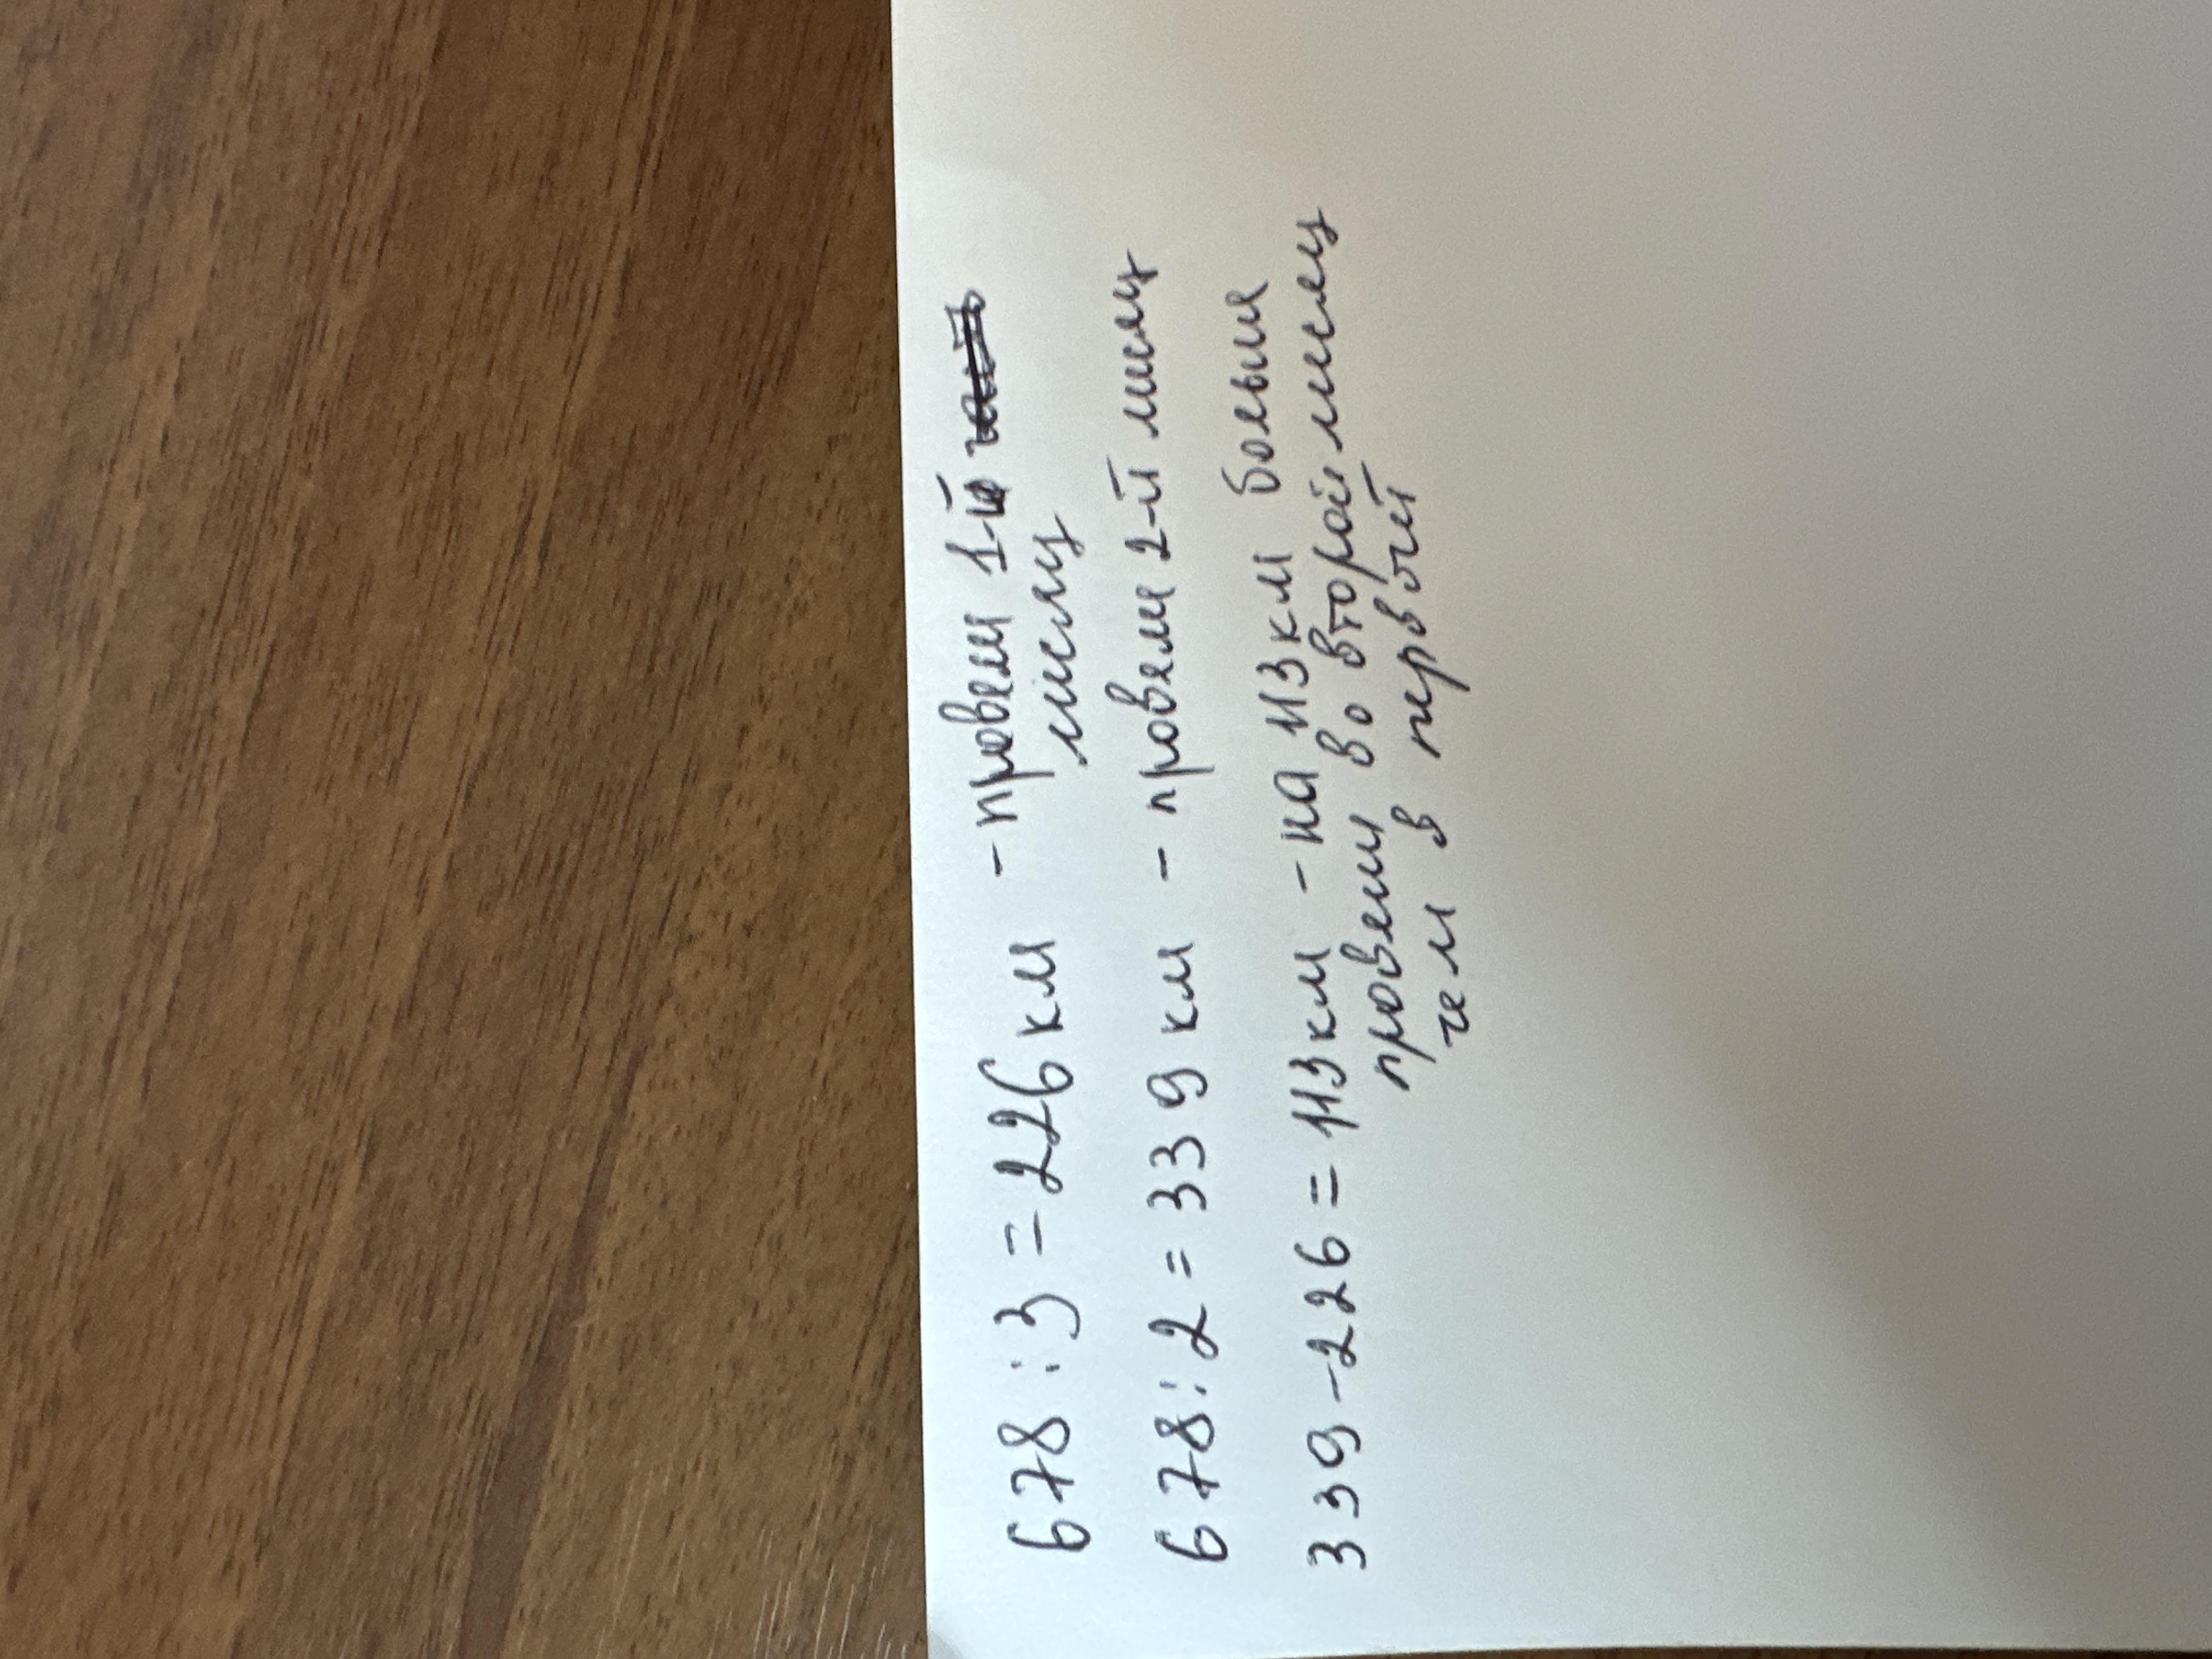 678 : 3 = 226 км - провели 1-й
месяц
678 : 2 = 339 км - провели 2-й месяц
339 - 226 = 113 км - на 113 км больше
провели во второй месяц
чем в первый